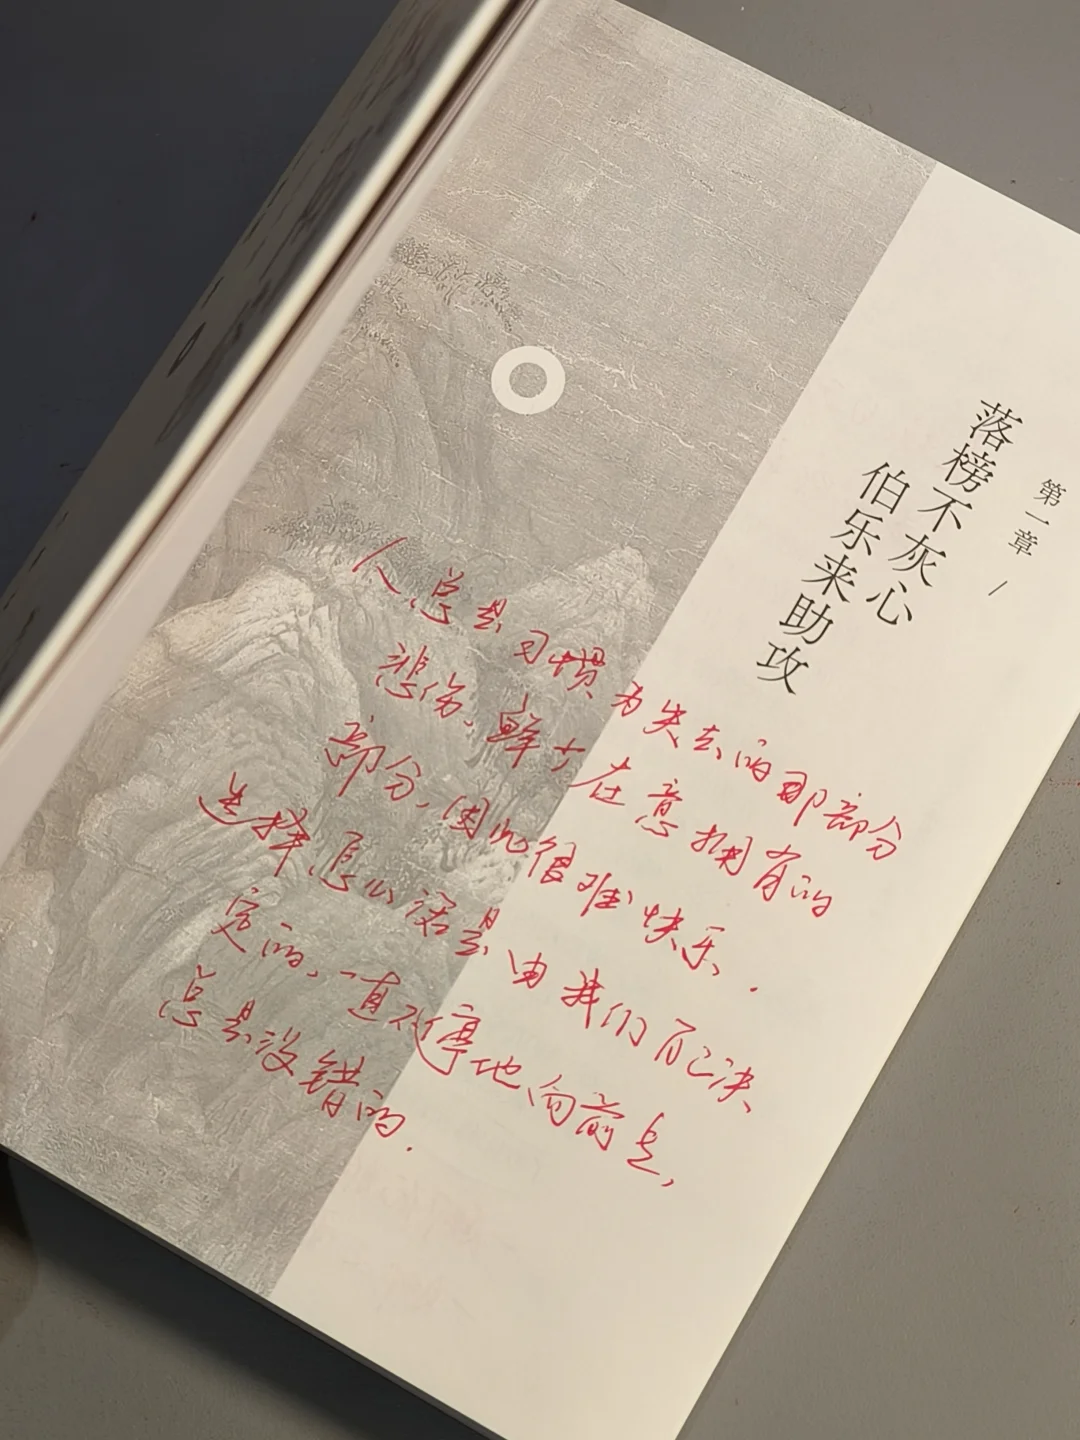 第一章 /
落榜不灰心
伯乐来助攻
人总是习惯为失去的那部分
悲伤，鲜少在意拥有的
部分，因此很难快乐．
选择怎么活是由我们自己决
定的，一直不停地向前走，
总是没错的．